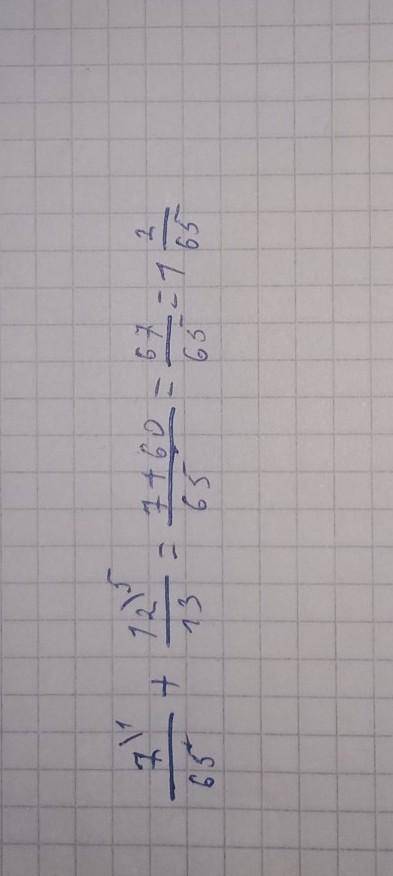 7\1/65 + 12\5/13 = 7+60/65 = 67/65 = 1 2/65